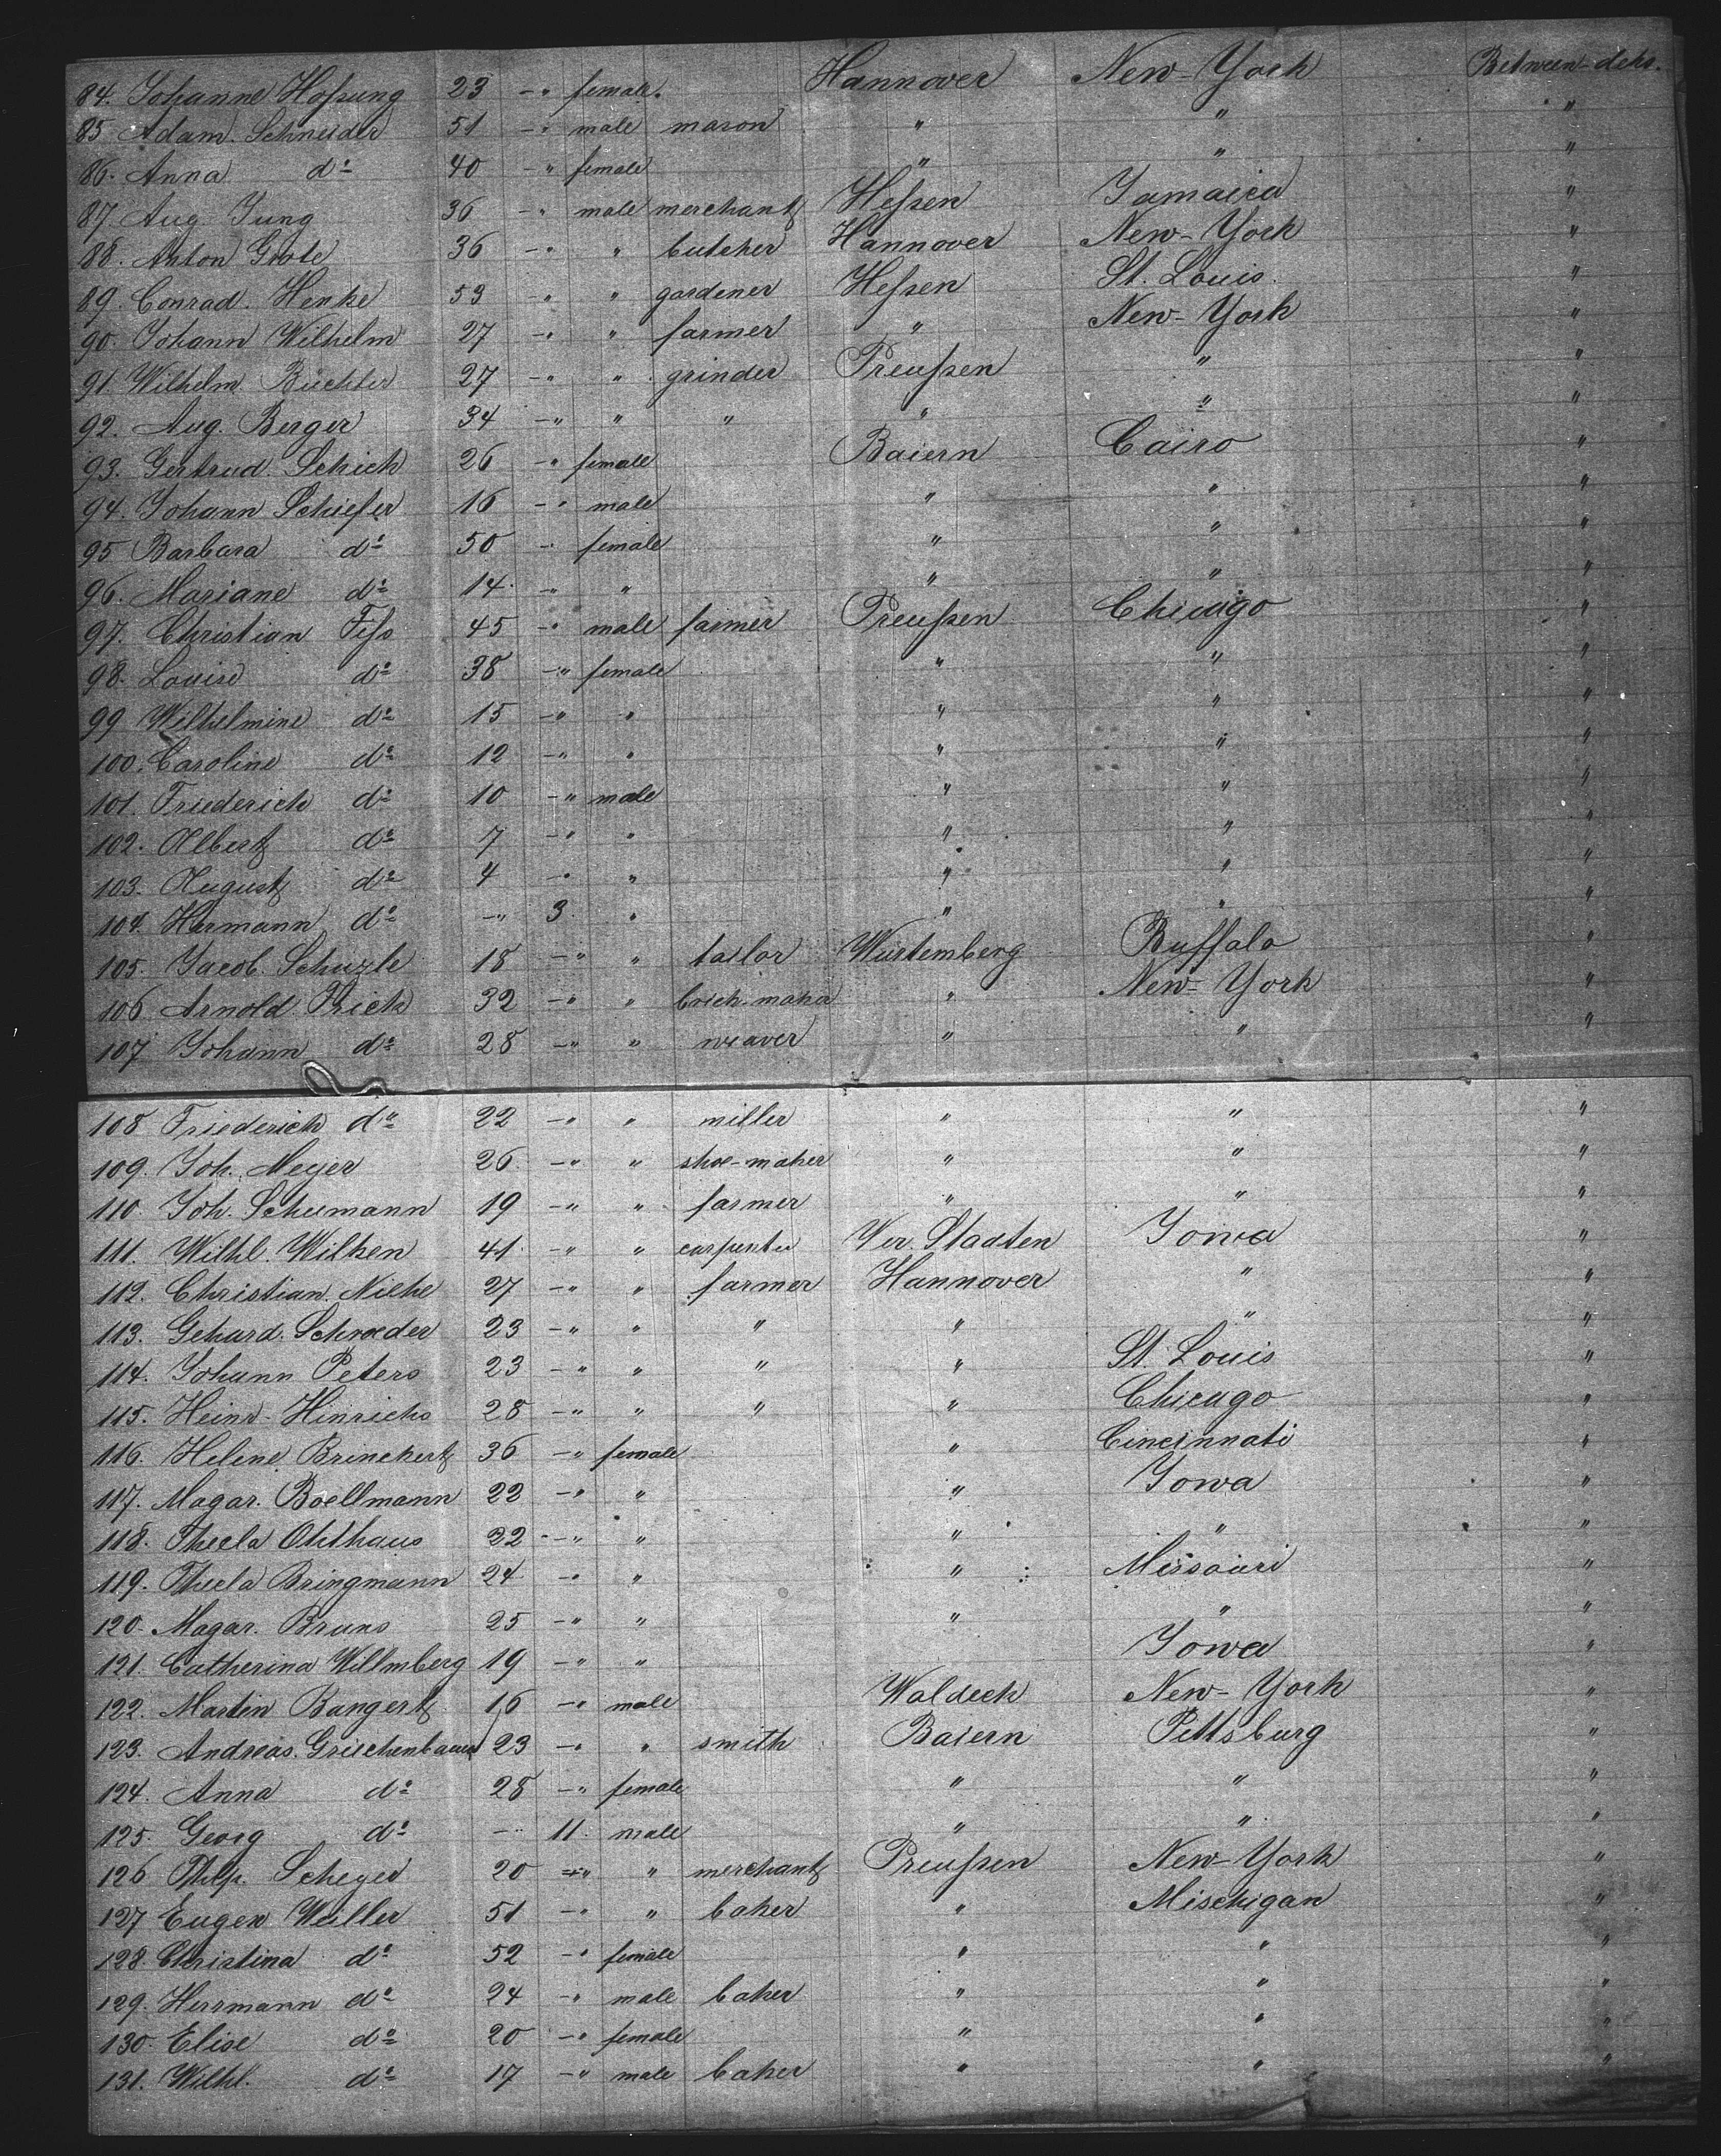 84. Johanne Hoßung 23 -" female. Hannover New-York Between-decks.
85 Adam. Schneider 51 -" male mason " " "
86. Anna do 40 -" female " " "
87 Aug Jung 36 -" male merchant Heßen Jamaica "
88. Anton Grote 36 -" " butcher Hannover New-York "
89. Conrad. Henke 59 -" " gardener Heßen St. Louis. "
90. Johann Wilhelm 27 -" " farmer " New-York "
91. Wilhelm Büchter 27 -" " grinder Preußen " "
92. Aug. Berger 34 -" " " " " "
93. Gertrud. Schich 26 -" female Baiern Cairo "
94. Johann Schiefer 16 -" male " " "
95 Barbara do 50 -" female " " "
96. Mariane do 14. -" " " " "
97. Christian Feß 45 -" male farmer Preußen Chicago "
98. Louise do 38 -" female " " "
99 Wilhelmine do 15 -" " " " "
100. Caroline do 12 -" " " " "
101. Friederich do 10 -" male " " "
102. Albert do 7 -" " " " "
103. August do 4 -" " " " "
104. Hermann do -" 3. " " " "
105. Jacob. Schuzle 18 -" " tailor Würtemberg Buffalo "
106 Arnold Frick 32 -" " brick-maker " New-York "
107 Johann do 28 -" " weaver " " "
108 Friederich do 22 -" " miller " " "
109. Joh. Meyer 26. -" " shoe-maker " " "
110. Joh. Schumann 19 -" " farmer " " "
111. Wilhl. Wilken 41. -" " carpenter Ver. Staaten Jowa "
112. Christian. Niehe 27 -" " farmer Hannover " "
113. Gehard. Schroeder 23 -" " " " " "
114. Johann Peters 23 -" " " " St. Louis "
115. Heinr. Hinrichs 28 -" " " " Chicago "
116. Helene Brinckert 36 -" female " Cincinnati "
117. Magar. Boellmann 22 -" " " Jowa "
118. Thecla Ohthaus 22 -" " " " "
119. Thecla Bringmann 24 -" " " Missouri "
120. Magar. Bruns 25 -" " " " "
121. Catherina Willmberg 19 -" " Jowa "
122. Martin Bangert 16 -" male Waldeck New-York "
123. Andreas. Griechenbauer 23 -" " smith Baiern Pittsburg "
124. Anna do 28 -" female " " "
125. Georg do -" 11. male " " "
126 Philp. Scheyer 20 -" " merchant Preußen New-York "
127 Eugen Weiller 51 -" " baker " Mischigan "
128. Christina do 52 -" female " " "
129. Herrmann do 24 -" male baker " " "
130. Elise do 20 -" female " " "
131. Wilhl. do 17 -" male baker " " "